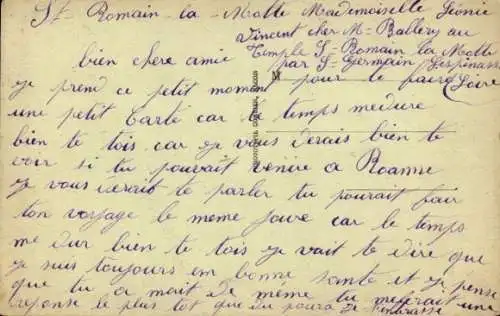 St- Romain - la - Motte Mademoiselle Léonie
Vincent cher Mr Ballery au
Temple St- Romain la Motte
par St- Germain Lespinasse
Loire
bien chere amie
je prend ce petit moment pour te faire
une petit carte car le temps me dure
bien te tois car je vous derais bien te
voir si tu pouvait venire a Roanne
je vous derait te parler tu pourait fair
ton voyage le meme joure car le temps
me dur bien te tois je vait te dire que
je suis toujours em bonne sante et je pense
que tu a mait de méme tu me ferait une
réponse le plus tot que tu poura je t'embrasse